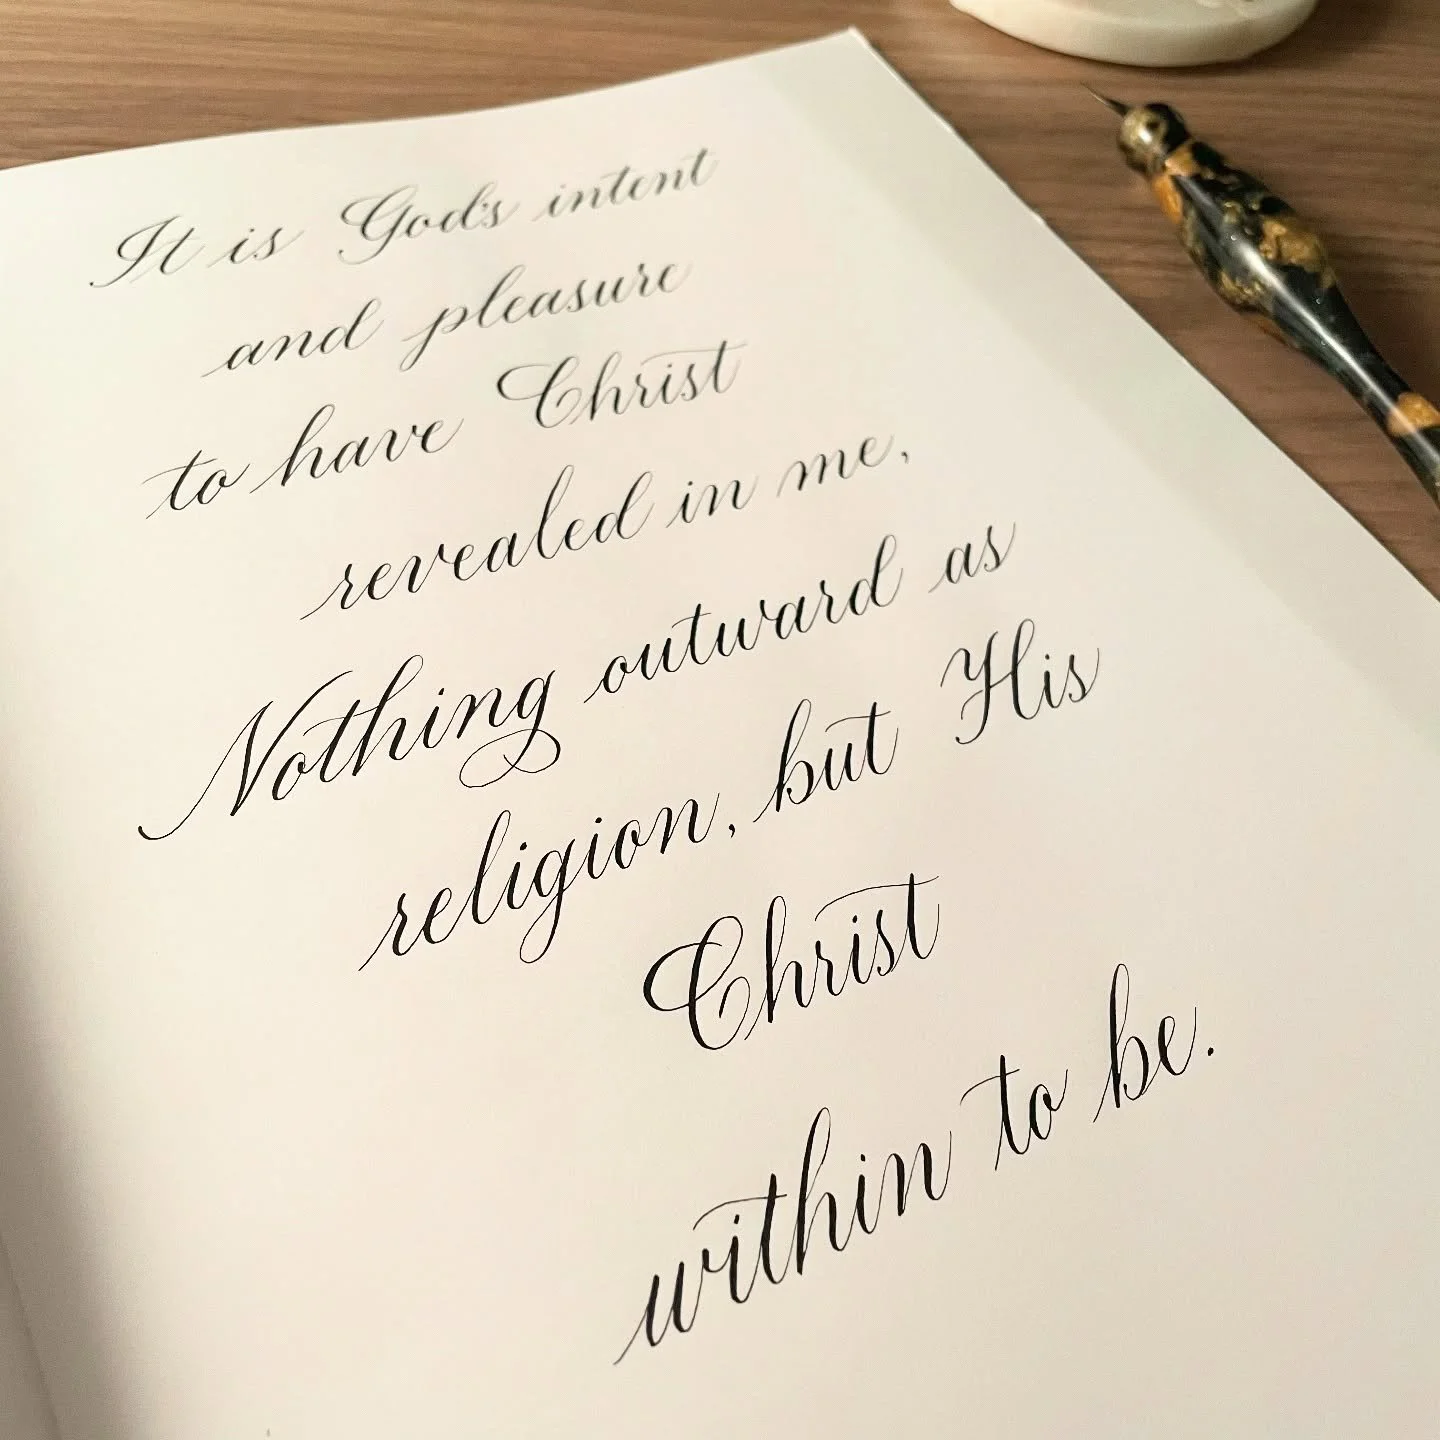 It is God's intent
and pleasure
to have Christ
revealed in me,
Nothing outward as
religion, but His
Christ
within to be.